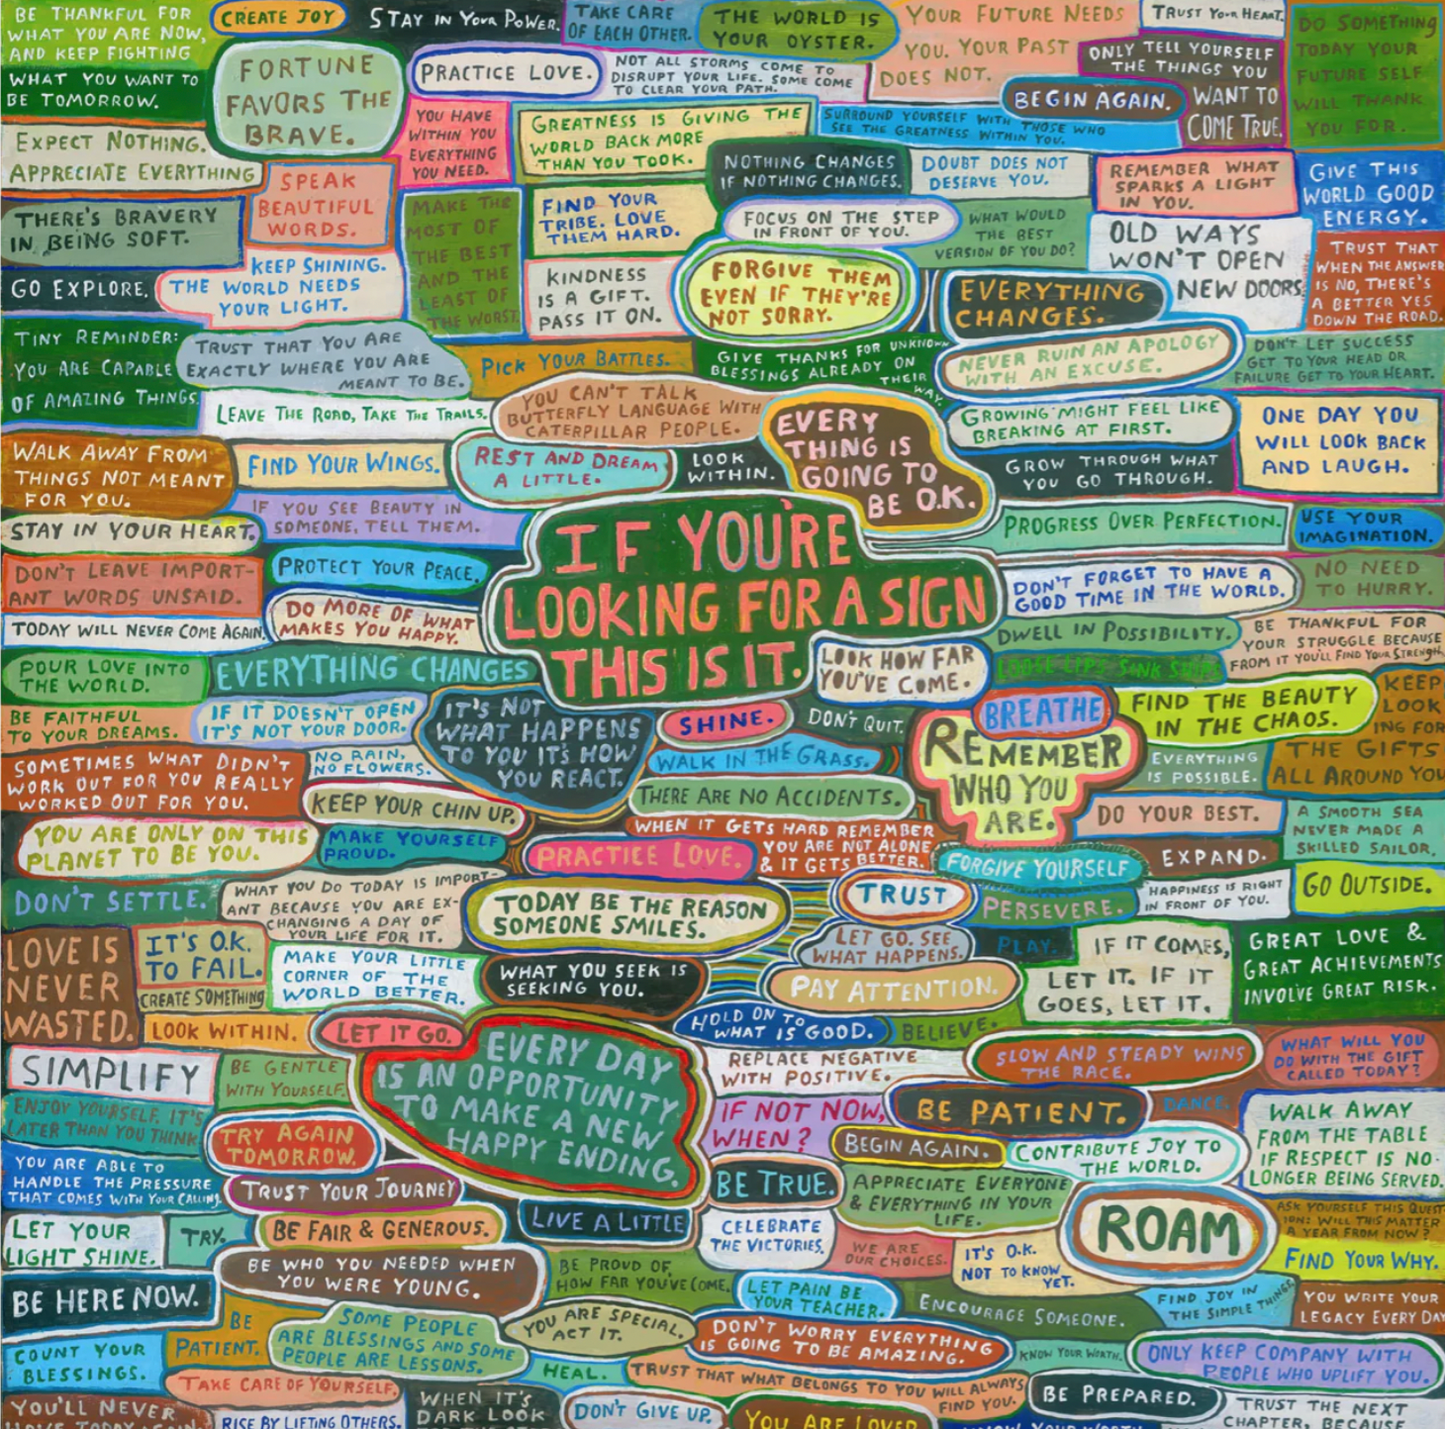 BE THANKFUL FOR
WHAT YOU ARE NOW,
AND KEEP FIGHTING
WHAT YOU WANT TO
BE TOMORROW.
CREATE JOY
STAY IN YOUR POWER.
TAKE CARE
OF EACH OTHER.
THE WORLD IS
YOUR OYSTER.
YOUR FUTURE NEEDS
YOU. YOUR PAST
DOES NOT.
TRUST YOUR HEART.
DO SOMETHING
TODAY YOUR
FUTURE SELF
WILL THANK
YOU FOR.
FORTUNE
FAVORS THE
BRAVE.
PRACTICE LOVE.
NOT ALL STORMS COME TO
DISRUPT YOUR LIFE. SOME COME
TO CLEAR YOUR PATH.
ONLY TELL YOURSELF
THE THINGS YOU
WANT TO
COME TRUE.
BEGIN AGAIN.
EXPECT NOTHING.
APPRECIATE EVERYTHING
YOU HAVE
WITHIN YOU
EVERYTHING
YOU NEED.
GREATNESS IS GIVING THE
WORLD BACK MORE
THAN YOU TOOK.
SURROUND YOURSELF WITH THOSE WHO
SEE THE GREATNESS WITHIN YOU.
SPEAK
BEAUTIFUL
WORDS.
NOTHING CHANGES
IF NOTHING CHANGES.
DOUBT DOES NOT
DESERVE YOU.
REMEMBER WHAT
SPARKS A LIGHT
IN YOU.
GIVE THIS
WORLD GOOD
ENERGY.
THERE'S BRAVERY
IN BEING SOFT.
MAKE THE
MOST OF
THE BEST
AND THE
LEAST OF
THE WORST.
FIND YOUR
TRIBE. LOVE
THEM HARD.
FOCUS ON THE STEP
IN FRONT OF YOU.
WHAT WOULD
THE BEST
VERSION OF YOU DO?
OLD WAYS
WON'T OPEN
NEW DOORS.
TRUST THAT
WHEN THE ANSWER
IS NO, THERE'S
A BETTER YES
DOWN THE ROAD.
GO EXPLORE.
KEEP SHINING.
THE WORLD NEEDS
YOUR LIGHT.
KINDNESS
IS A GIFT.
PASS IT ON.
FORGIVE THEM
EVEN IF THEY'RE
NOT SORRY.
EVERYTHING
CHANGES.
TINY REMINDER:
YOU ARE CAPABLE
OF AMAZING THINGS.
TRUST THAT YOU ARE
EXACTLY WHERE YOU ARE
MEANT TO BE.
PICK YOUR BATTLES.
GIVE THANKS FOR UNKNOWN
BLESSINGS ALREADY ON
THEIR
WAY.
NEVER RUIN AN APOLOGY
WITH AN EXCUSE.
DON'T LET SUCCESS
GET TO YOUR HEAD OR
FAILURE GET TO YOUR HEART.
LEAVE THE ROAD, TAKE THE TRAILS.
YOU CAN'T TALK
BUTTERFLY LANGUAGE WITH
CATERPILLAR PEOPLE.
EVERY
THING IS
GOING TO
BE O.K.
GROWING MIGHT FEEL LIKE
BREAKING AT FIRST.
ONE DAY YOU
WILL LOOK BACK
AND LAUGH.
WALK AWAY FROM
THINGS NOT MEANT
FOR YOU.
FIND YOUR WINGS.
REST AND DREAM
A LITTLE.
LOOK
WITHIN.
GROW THROUGH WHAT
YOU GO THROUGH.
IF YOU SEE BEAUTY IN
SOMEONE, TELL THEM.
STAY IN YOUR HEART.
PROGRESS OVER PERFECTION.
USE YOUR
IMAGINATION.
IF YOU'RE
LOOKING FOR A SIGN
THIS IS IT.
DON'T LEAVE IMPORT-
ANT WORDS UNSAID.
PROTECT YOUR PEACE.
DON'T FORGET TO HAVE A
GOOD TIME IN THE WORLD.
NO NEED
TO HURRY.
TODAY WILL NEVER COME AGAIN.
DO MORE OF WHAT
MAKES YOU HAPPY.
DWELL IN POSSIBILITY.
BE THANKFUL FOR
YOUR STRUGGLE BECAUSE
FROM IT YOU'LL FIND YOUR STRENGTH
POUR LOVE INTO
THE WORLD.
EVERYTHING CHANGES
LOOK HOW FAR
YOU'VE COME.
LOOSE LIPS SINK SHIPS
BE FAITHFUL
TO YOUR DREAMS.
IF IT DOESN'T OPEN
IT'S NOT YOUR DOOR.
IT'S NOT
WHAT HAPPENS
TO YOU IT'S HOW
YOU REACT.
SHINE.
DON'T QUIT.
BREATHE
FIND THE BEAUTY
IN THE CHAOS.
KEEP
LOOK
ING FOR
THE GIFTS
ALL AROUND YOU
SOMETIMES WHAT DIDN'T
WORK OUT FOR YOU REALLY
WORKED OUT FOR YOU.
NO RAIN,
NO FLOWERS.
WALK IN THE GRASS.
REMEMBER
WHO YOU
ARE.
EVERYTHING
IS POSSIBLE.
KEEP YOUR CHIN UP.
THERE ARE NO ACCIDENTS.
DO YOUR BEST.
A SMOOTH SEA
NEVER MADE A
SKILLED SAILOR.
YOU ARE ONLY ON THIS
PLANET TO BE YOU.
MAKE YOURSELF
PROUD.
PRACTICE LOVE.
WHEN IT GETS HARD REMEMBER
YOU ARE NOT ALONE
& IT GETS BETTER.
FORGIVE YOURSELF
EXPAND.
DON'T SETTLE.
WHAT YOU DO TODAY IS IMPORT-
ANT BECAUSE YOU ARE EX-
CHANGING A DAY OF
YOUR LIFE FOR IT.
TODAY BE THE REASON
SOMEONE SMILES.
TRUST
PERSEVERE.
HAPPINESS IS RIGHT
IN FRONT OF YOU.
GO OUTSIDE.
LOVE IS
NEVER
WASTED.
IT'S O.K.
TO FAIL.
CREATE SOMETHING
MAKE YOUR LITTLE
CORNER OF THE
WORLD BETTER.
WHAT YOU SEEK IS
SEEKING YOU.
LET GO. SEE
WHAT HAPPENS.
PLAY.
IF IT COMES,
LET IT. IF IT
GOES, LET IT.
GREAT LOVE &
GREAT ACHIEVEMENTS
INVOLVE GREAT RISK.
PAY ATTENTION.
LOOK WITHIN.
LET IT GO.
HOLD ON TO
WHAT IS GOOD.
BELIEVE.
SIMPLIFY
BE GENTLE
WITH YOURSELF.
EVERY DAY
IS AN OPPORTUNITY
TO MAKE A NEW
HAPPY ENDING.
REPLACE NEGATIVE
WITH POSITIVE.
SLOW AND STEADY WINS
THE RACE.
WHAT WILL YOU
DO WITH THE GIFT
CALLED TODAY?
ENJOY YOURSELF, IT'S
LATER THAN YOU THINK
TRY AGAIN
TOMORROW.
IF NOT NOW,
WHEN?
BE PATIENT.
DANCE.
WALK AWAY
FROM THE TABLE
IF RESPECT IS NO
LONGER BEING SERVED.
BEGIN AGAIN.
CONTRIBUTE JOY TO
THE WORLD.
YOU ARE ABLE TO
HANDLE THE PRESSURE
THAT COMES WITH YOUR CALLING.
TRUST YOUR JOURNEY
BE TRUE.
APPRECIATE EVERYONE
& EVERYTHING IN YOUR
LIFE.
ROAM
ASK YOURSELF THIS QUEST
ION: WILL THIS MATTER
A YEAR FROM NOW?
LET YOUR
LIGHT SHINE.
TRY.
BE FAIR & GENEROUS.
LIVE A LITTLE
CELEBRATE
THE VICTORIES.
WE ARE
OUR CHOICES.
IT'S O.K.
NOT TO KNOW
YET.
FIND YOUR WHY.
BE WHO YOU NEEDED WHEN
YOU WERE YOUNG.
BE PROUD OF
HOW FAR YOU'VE COME.
BE HERE NOW.
LET PAIN BE
YOUR TEACHER.
ENCOURAGE SOMEONE.
FIND JOY IN
THE SIMPLE THINGS
YOU WRITE YOUR
LEGACY EVERY DAY
BE
PATIENT.
SOME PEOPLE
ARE BLESSINGS AND SOME
PEOPLE ARE LESSONS.
YOU ARE SPECIAL.
ACT IT.
DON'T WORRY EVERYTHING
IS GOING TO BE AMAZING.
KNOW YOUR WORTH.
ONLY KEEP COMPANY WITH
PEOPLE WHO UPLIFT YOU.
COUNT YOUR
BLESSINGS.
HEAL.
TRUST THAT WHAT BELONGS TO YOU WILL ALWAYS
FIND YOU.
TAKE CARE OF YOURSELF.
BE PREPARED.
YOU'LL NEVER
RISE BY LIFTING OTHERS.
WHEN IT'S
DARK LOOK
DON'T GIVE UP.
YOU ARE LOVED
TRUST THE NEXT
CHAPTER, BECAUSE